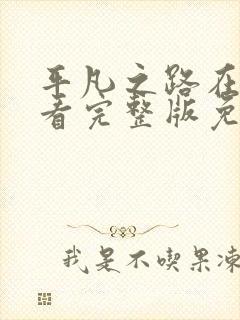 平凡之路在
看完整版免
我是不喫果凍